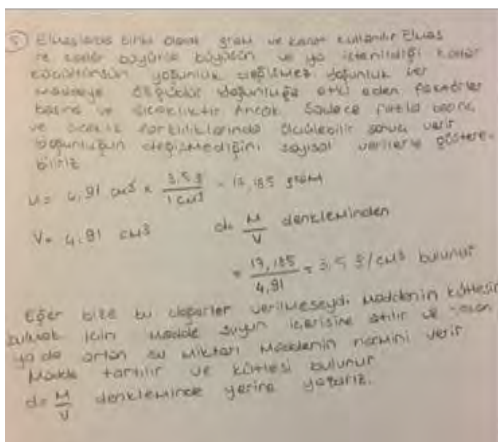 5) Elmaslarda birim olarak gram ve karat kullanılır Elmas
ne kadar büyürse büyüsün ve ya istenildiği kadar
küçültünsün yoğunluk değişmez yoğunluk her
maddeye özgüdür yoğunluğa etki eden faktörler
basınç ve sıcaklıktır Ancak Sadece fazla basınç
ve sıcaklık farklılıklarında ölçülebilir sonuç verir
Yoğunluğun değişmediğini sayısal verilerle göstere-
biliriz
M= 4,91 cm³ x 3,5 g / 1 cm³ = 17,185 gram
V= 4,91 cm³ d= M/V denkleminden
= 17,185 / 4,91 = 3,5 g/cm³ bulunur
Eğer bize bu değerler verilmeseydi maddenin kütlesini
bulmak için madde suyun içerisine atılır ve taşan
ya da artan su miktarı maddenin hacmini verir
Madde tartılır ve kütlesi bulunur
d= M/V denkleminde yerine yazarız.